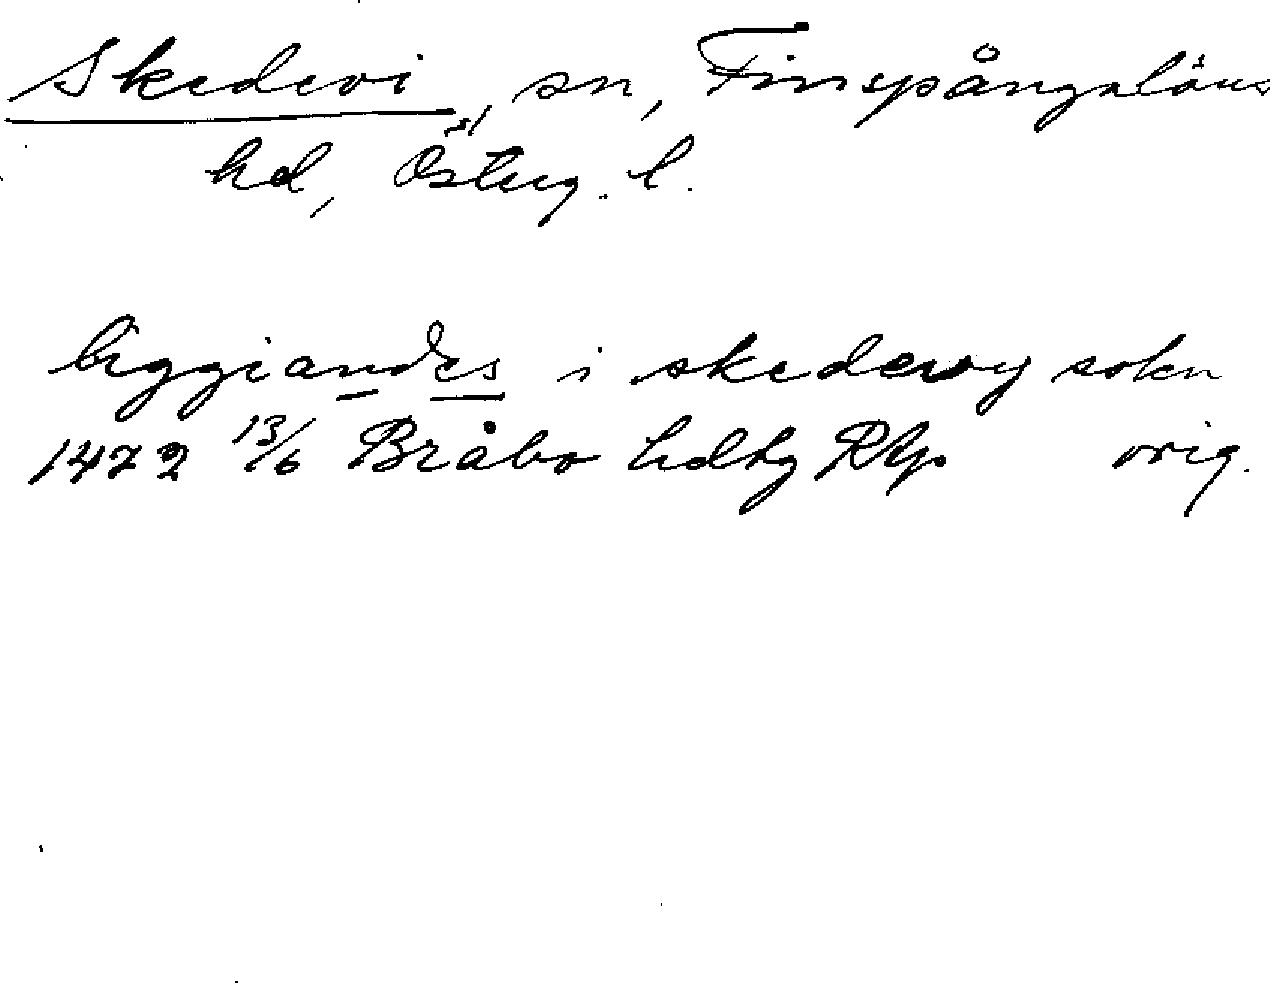 Skedevi, sn, Finspångaläns
hd, Österg. l.
liggiandes i skedewy sokn
1472 13/6 Bråbo hdtg RAp orig.